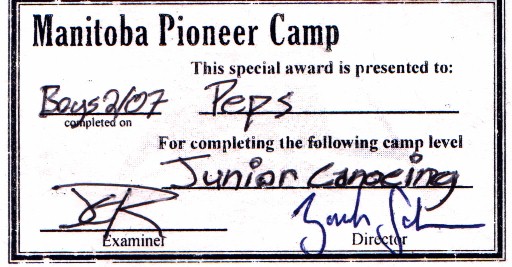 Manitoba Pioneer Camp
This special award is presented to:
Boys 2/07 Peps
completed on
For completing the following camp level
Junior Canoeing
Examiner Director